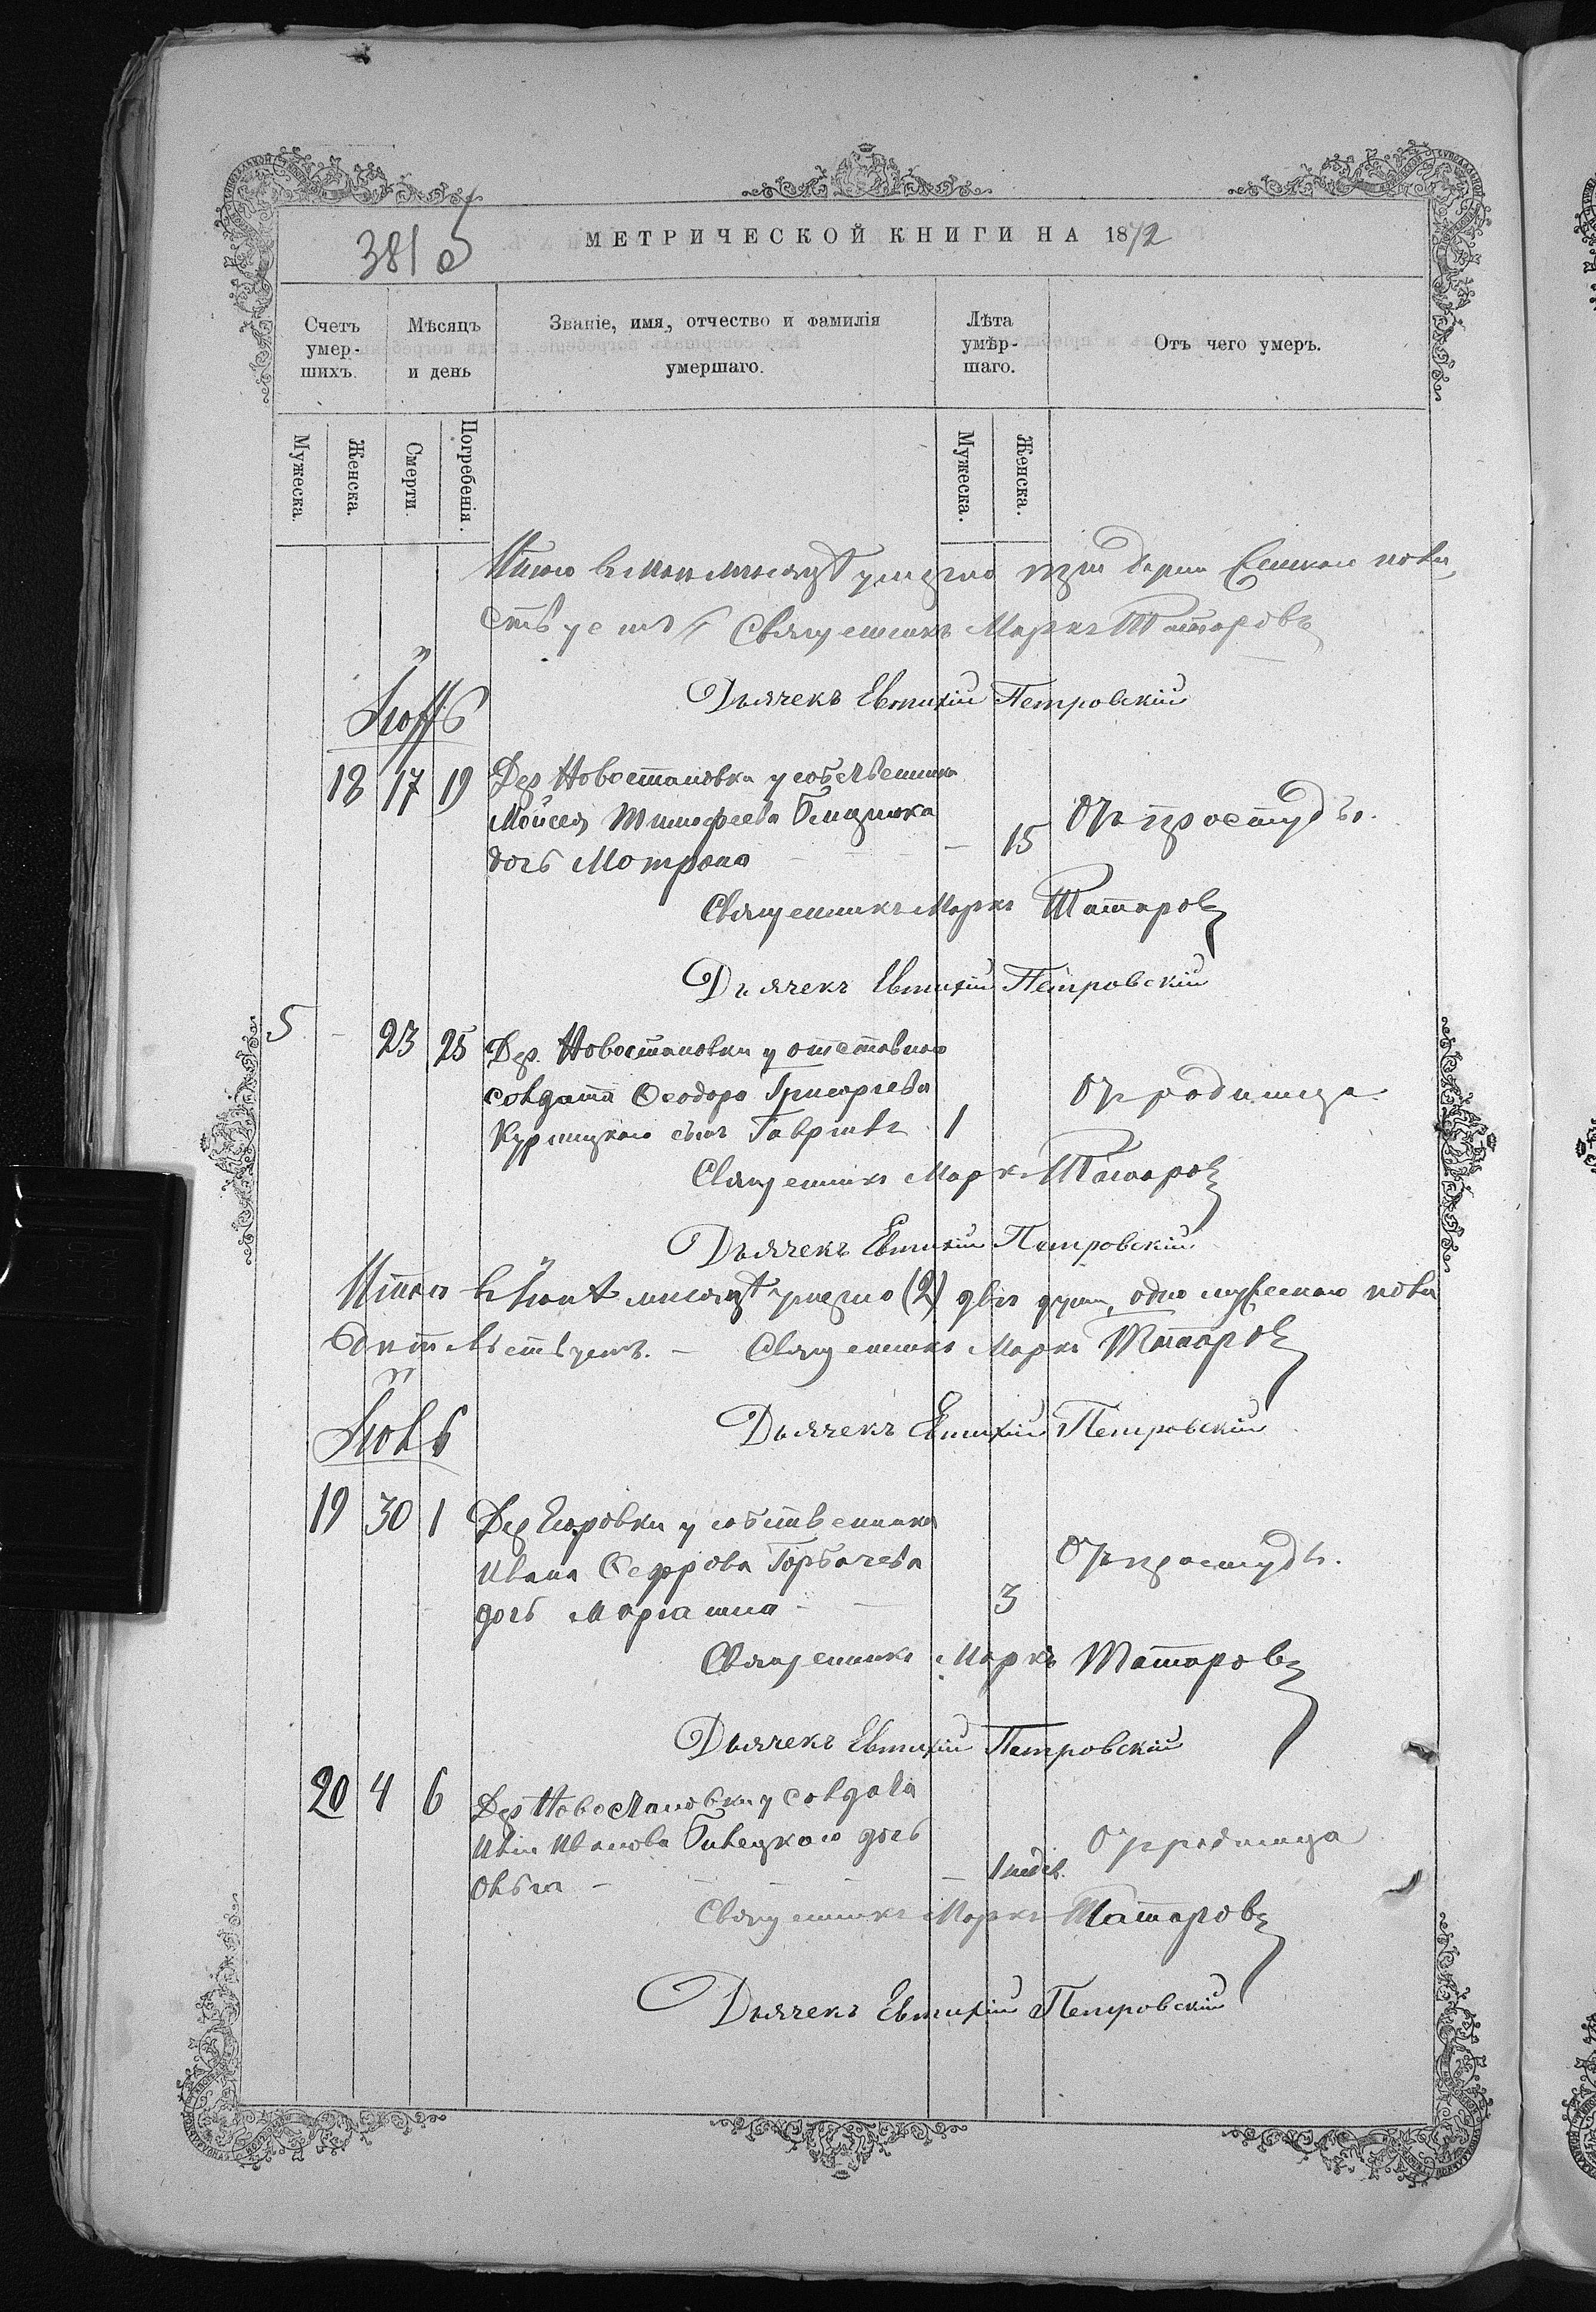 381 об
МЕТРИЧЕСКОЙ КНИГИ НА 1872
Счетъ умер-шихъ.
Мѣсяцъ и день
Званіе, имя, отчество и фамилія умершаго.
Лѣта умѣр-шаго.
Отъ чего умеръ.
Мужеска.
Женска.
Смерти.
Погребенія.
Мужеска.
Женска.
Итого в маи месяцѣ умерло три
Священникъ Маркъ Татаровъ
Дьячекъ Евтихій Петровскій
Іюнь
18 17 19 Дер Новостановки у собственика
Мойсея Тимофеева
дочь Мотрона - 15 От простуды.
Священникъ Маркъ Татаров
Дьячекъ Евтихій Петровскій
5 - 23 25 Дер. Новостановки у отставного
солдата Феодора Григорьева От родимца
сынъ Гавриилъ 1
Священникъ Маркъ Татаров
Дьячекъ Евтихій Петровскій
Итого в Іюнѣ месяцѣ умерло (2) двѣ души, одна мужеского пола
Священникъ Маркъ Татаров
Дьячекъ Евтихій Петровскій
Іюль
19 30 1 Дер Егоровки у собственика
Ивана Федорова Горбачева От простуды.
дочь Мариамна - 3
Священникъ Маркъ Татаровъ
Дьячекъ Евтихій Петровскій
20 4 6 Дер Новостановки у солдата
Иванова Билецкого дочь От родимца
Ольга - 1 недѣ.
Священникъ Маркъ Татаровъ
Дьячекъ Евтихій Петровскій